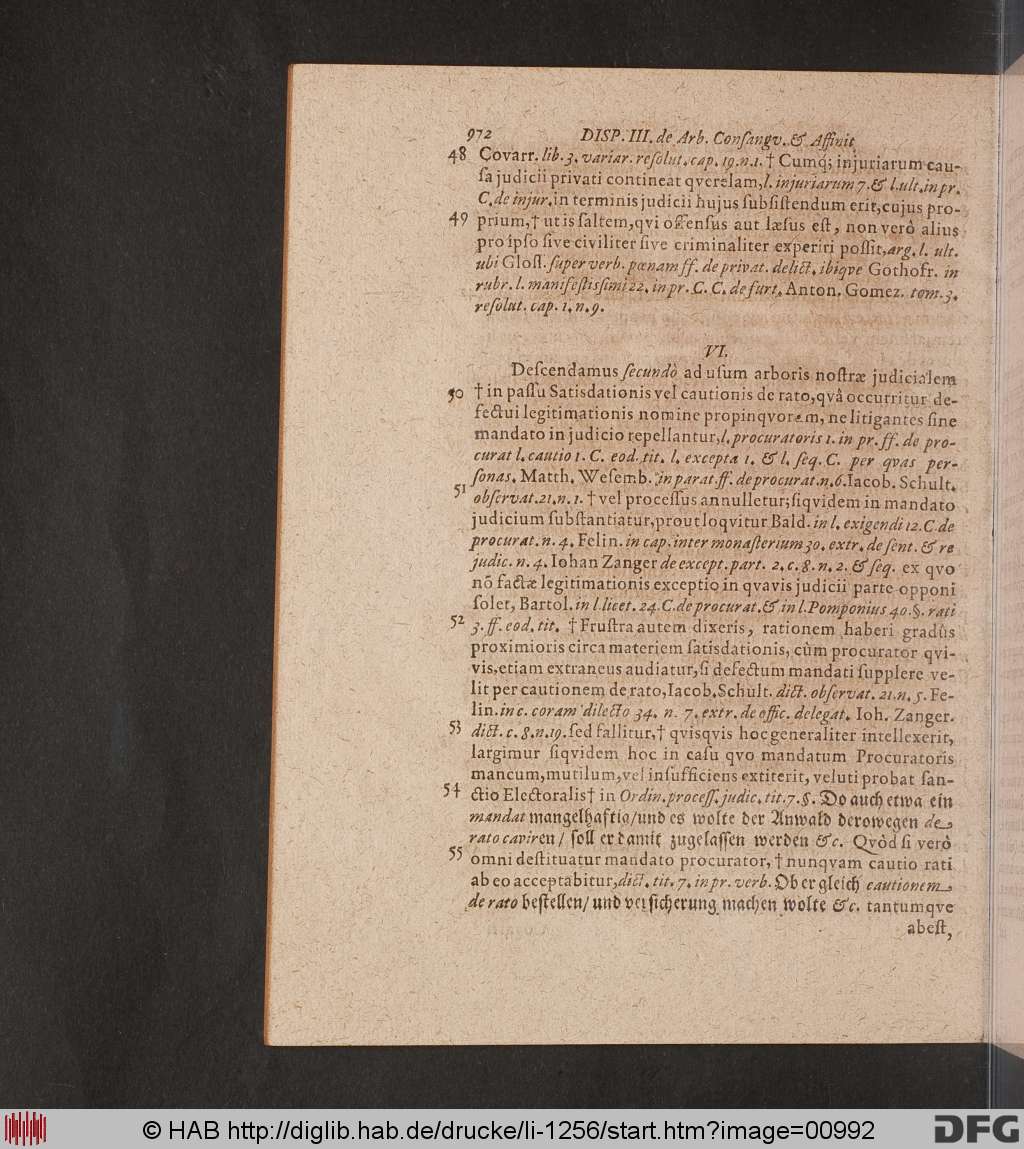 972 DISP. III. de Arb. Consangv. & Affinit
48 Covarr. lib. 3. variar. resolut. cap. 19. n. 1. † Cumq́; injuriarum cau-
sa judicii privati contineat qverelam, l. injuriarum 7. & l. ult. in pr.
C. de injur. in terminis judicii hujus subsistendum erit, cujus pro-
49 prium, † ut is saltem, qvi offensus aut læsus est, non verò alius
pro ipso sive civiliter sive criminaliter experiri possit, arg. l. ult.
ubi Gloss. super verb. pœnam ff. de privat. delict. ibiqve Gothofr. in
rubr. l. manifestissimi 22. in pr. C. C. de furt. Anton. Gomez. tom. 3.
resolut. cap. 1. n. 9.
VI.
Descendamus secundò ad usum arboris nostræ judicialem
50 † in passu Satisdationis vel cautionis de rato, qvâ occurritur de-
fectui legitimationis nomine propinqvorum, ne litigantes sine
mandato in judicio repellantur, l. procuratoris 1. in pr. ff. de pro-
curat l. cautio 1. C. eod. tit. l. excepta 1. & l. seq. C. per qvas per-
sonas. Matth. Wesemb. in parat. ff. de procurat. n. 6. Iacob. Schult.
51 observat. 21. n. 1. † vel processus annulletur; siqvidem in mandato
judicium substantiatur, prout loqvitur Bald. in l. exigendi 12. C de
procurat. n. 4. Felin. in cap. inter monasterium 30. extr. de sent. & re
judic. n. 4. Iohan Zanger de except. part. 2. c. 8. n. 2. & seq. ex qvo
nō factæ legitimationis exceptio in qvavis judicii parte opponi
solet, Bartol. in l. licet. 24. C. de procurat. & in l. Pomponius 40. §. rati
52 3. ff. eod. tit. † Frustra autem dixeris, rationem haberi gradûs
proximioris circa materiem satisdationis, cùm procurator qvi-
vis, etiam extraneus audiatur, si defectum mandati supplere ve-
lit per cautionem de rato, Iacob. Schult. dict. observat. 21. n. 5. Fe-
lin. in c. coram dilecto 34. n. 7. extr. de offic. delegat. Ioh. Zanger.
53 dict. c. 8. n. 19. sed fallitur, † qvisqvis hoc generaliter intellexerit,
largimur siqvidem hoc in casu qvo mandatum Procuratoris
mancum, mutilum, vel insufficiens extiterit, veluti probat san-
54 ctio Electoralis † in Ordin. process. judic. tit. 7. §. Do auch etwa ein
mandat mangelhafftig/ und es wolte der Anwald derowegen de
rato caviren/ soll er damit zugelassen werden &c. Qvòd si verò
55 omni destituatur mandato procurator, † nunqvam cautio rati
ab eo acceptabitur, dict. tit. 7. in pr. verb. Ob er gleich cautionem
de rato bestellen/ und versicherung machen wolte &c. tantumqve
abest,
© HAB http://diglib.hab.de/drucke/li-1256/start.htm?image=00992
DFG